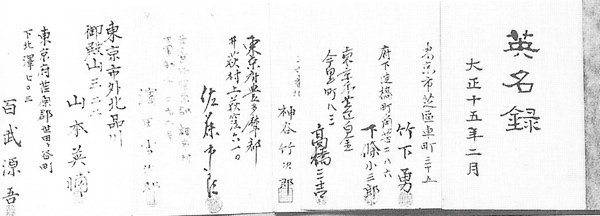 英名録
大正十五年二月
東京市芝区車町三十五
竹下勇
府下淀橋町角筈二八六
下條小三郎
東京市芝区白金
今里町八三
高橋三吉
神谷竹次郎
東京府豊多摩郡
井荻村上荻窪六一〇
佐藤市郎
東京市外北品川
御殿山三二三
山本英輔
東京府荏原郡世田ヶ谷町
下北澤七〇二
百武源吾